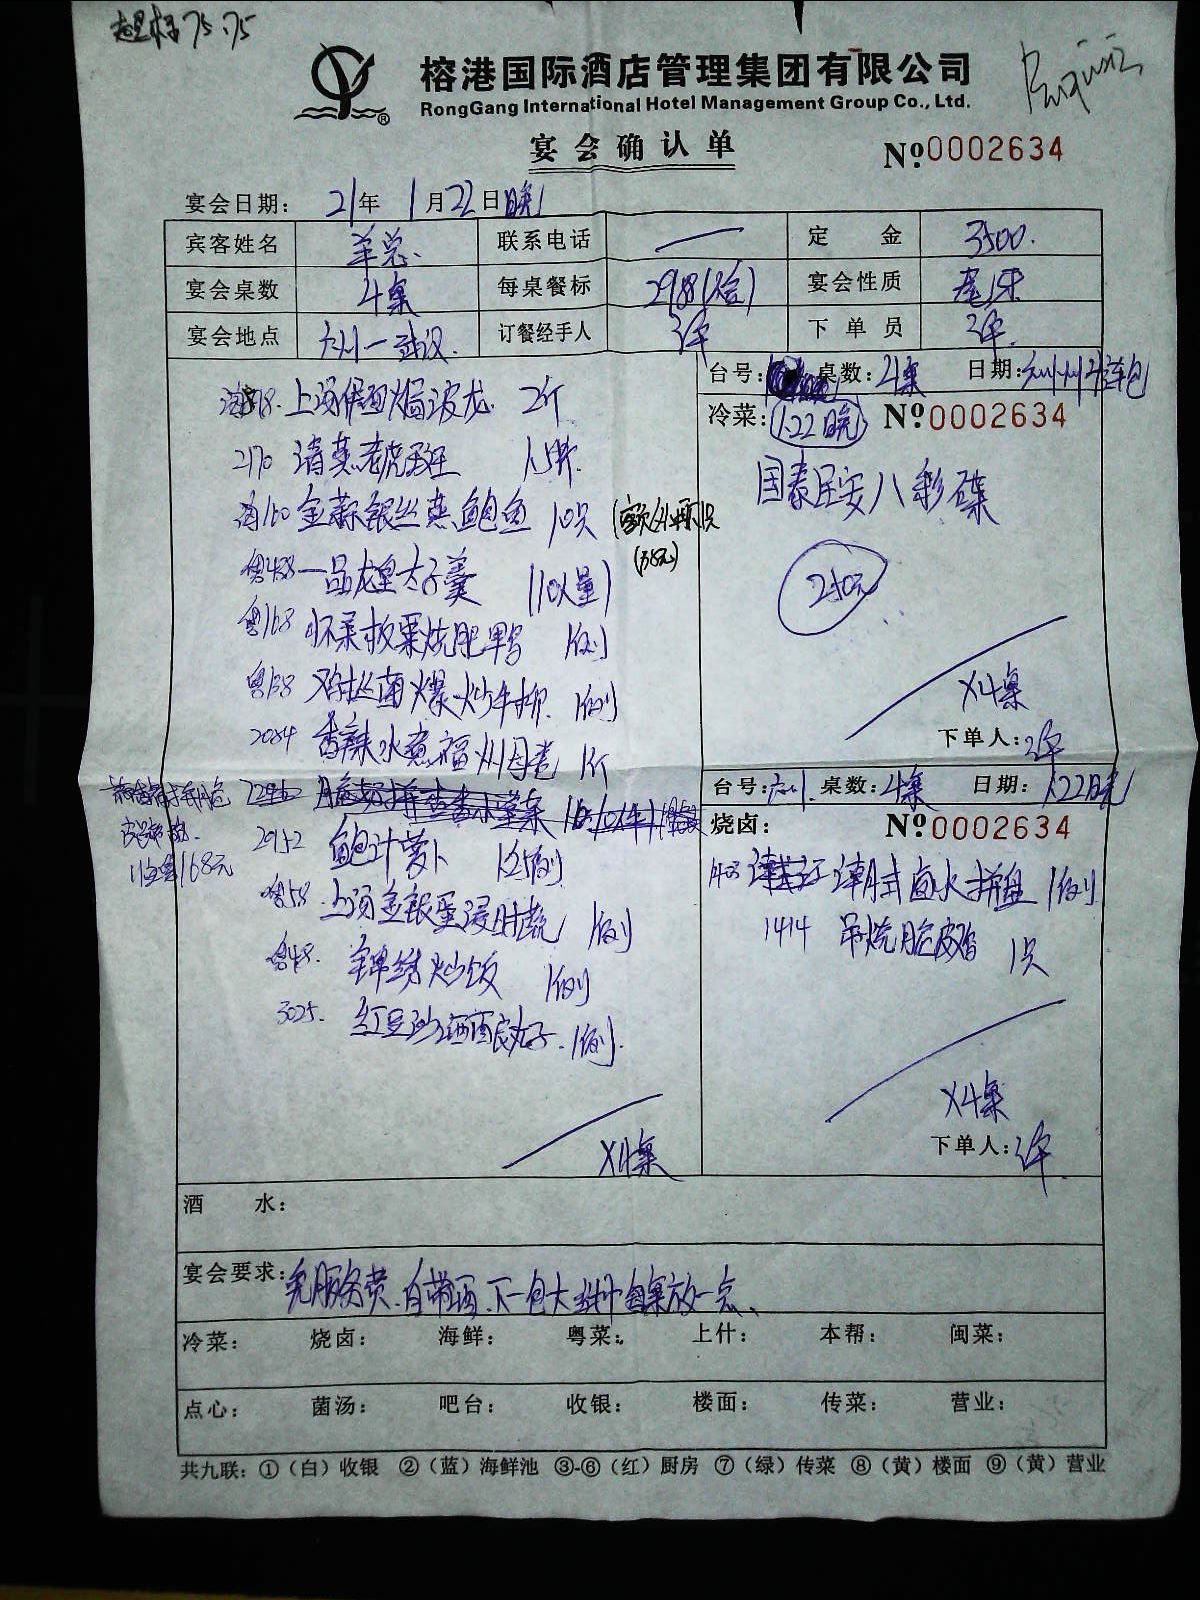 榕港国际酒店管理集团有限公司
RongGang International Hotel Management Group Co., Ltd.
宴会确认单
№ 0002634
宴会日期: 21年 1月22日晚
宾客姓名 羊总 联系电话 — 定金 3500.
宴会桌数 4桌 每桌餐标 2988 宴会性质 尾牙
宴会地点 订餐经手人 下单员
台号: 桌数: 4桌 日期:
冷菜: 1.22晚 № 0002634
国泰民安八彩碟
250元
X4桌
下单人:
上汤伊面焗波龙 2个
2170 清蒸老虎斑 1.5斤
海160 金蒜银丝蒸鲍鱼 10只
(38元)
粤488 一品龙皇太子羹 (10人量)
粤168 怀柔板栗烧肥鸭 1例
鸡枞菌爆炒牛柳 1例
2084 香辣水煮福州 1个
168元
2952 鲍汁萝卜 1.5例
粤58 上汤金银蛋浸时蔬 1例
粤48. 锦绣炒饭 1例
3025. 红豆沙酒酿丸子 1例.
X4桌
台号: 桌数: 4桌 日期: 1.22晚
烧卤: № 0002634
潮式卤水拼盘 1例
1414 吊烧脆皮鸡 1只
X4桌
下单人:
酒水:
宴会要求: 免服务费、自带酒、
冷菜: 烧卤: 海鲜: 粤菜: 上什: 本帮: 闽菜:
点心: 菌汤: 吧台: 收银: 楼面: 传菜: 营业:
共九联: ①(白)收银 ②(蓝)海鲜池 ③-⑥(红)厨房 ⑦(绿)传菜 ⑧(黄)楼面 ⑨(黄)营业